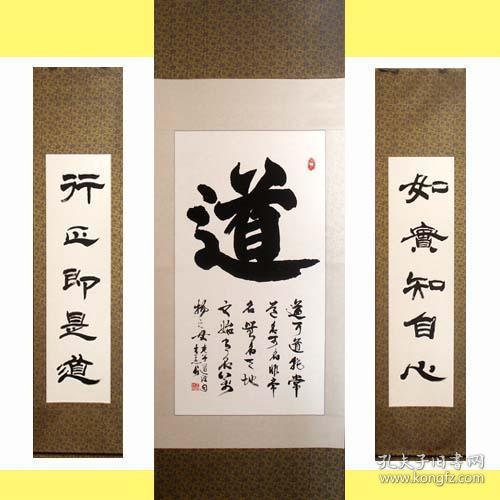 如實知自心
道
道可道非常
道名可名非常
名無名天地
之始有名萬
物之母
行正即是道
孔夫子旧书网
www.kongfz.com